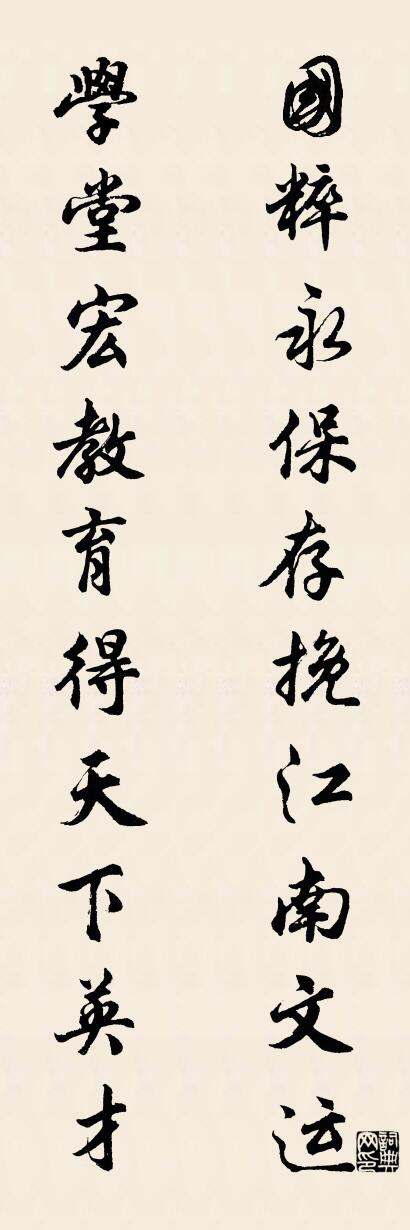 國粹永保存挽江南文运
學堂宏教育得天下英才
詞典网印